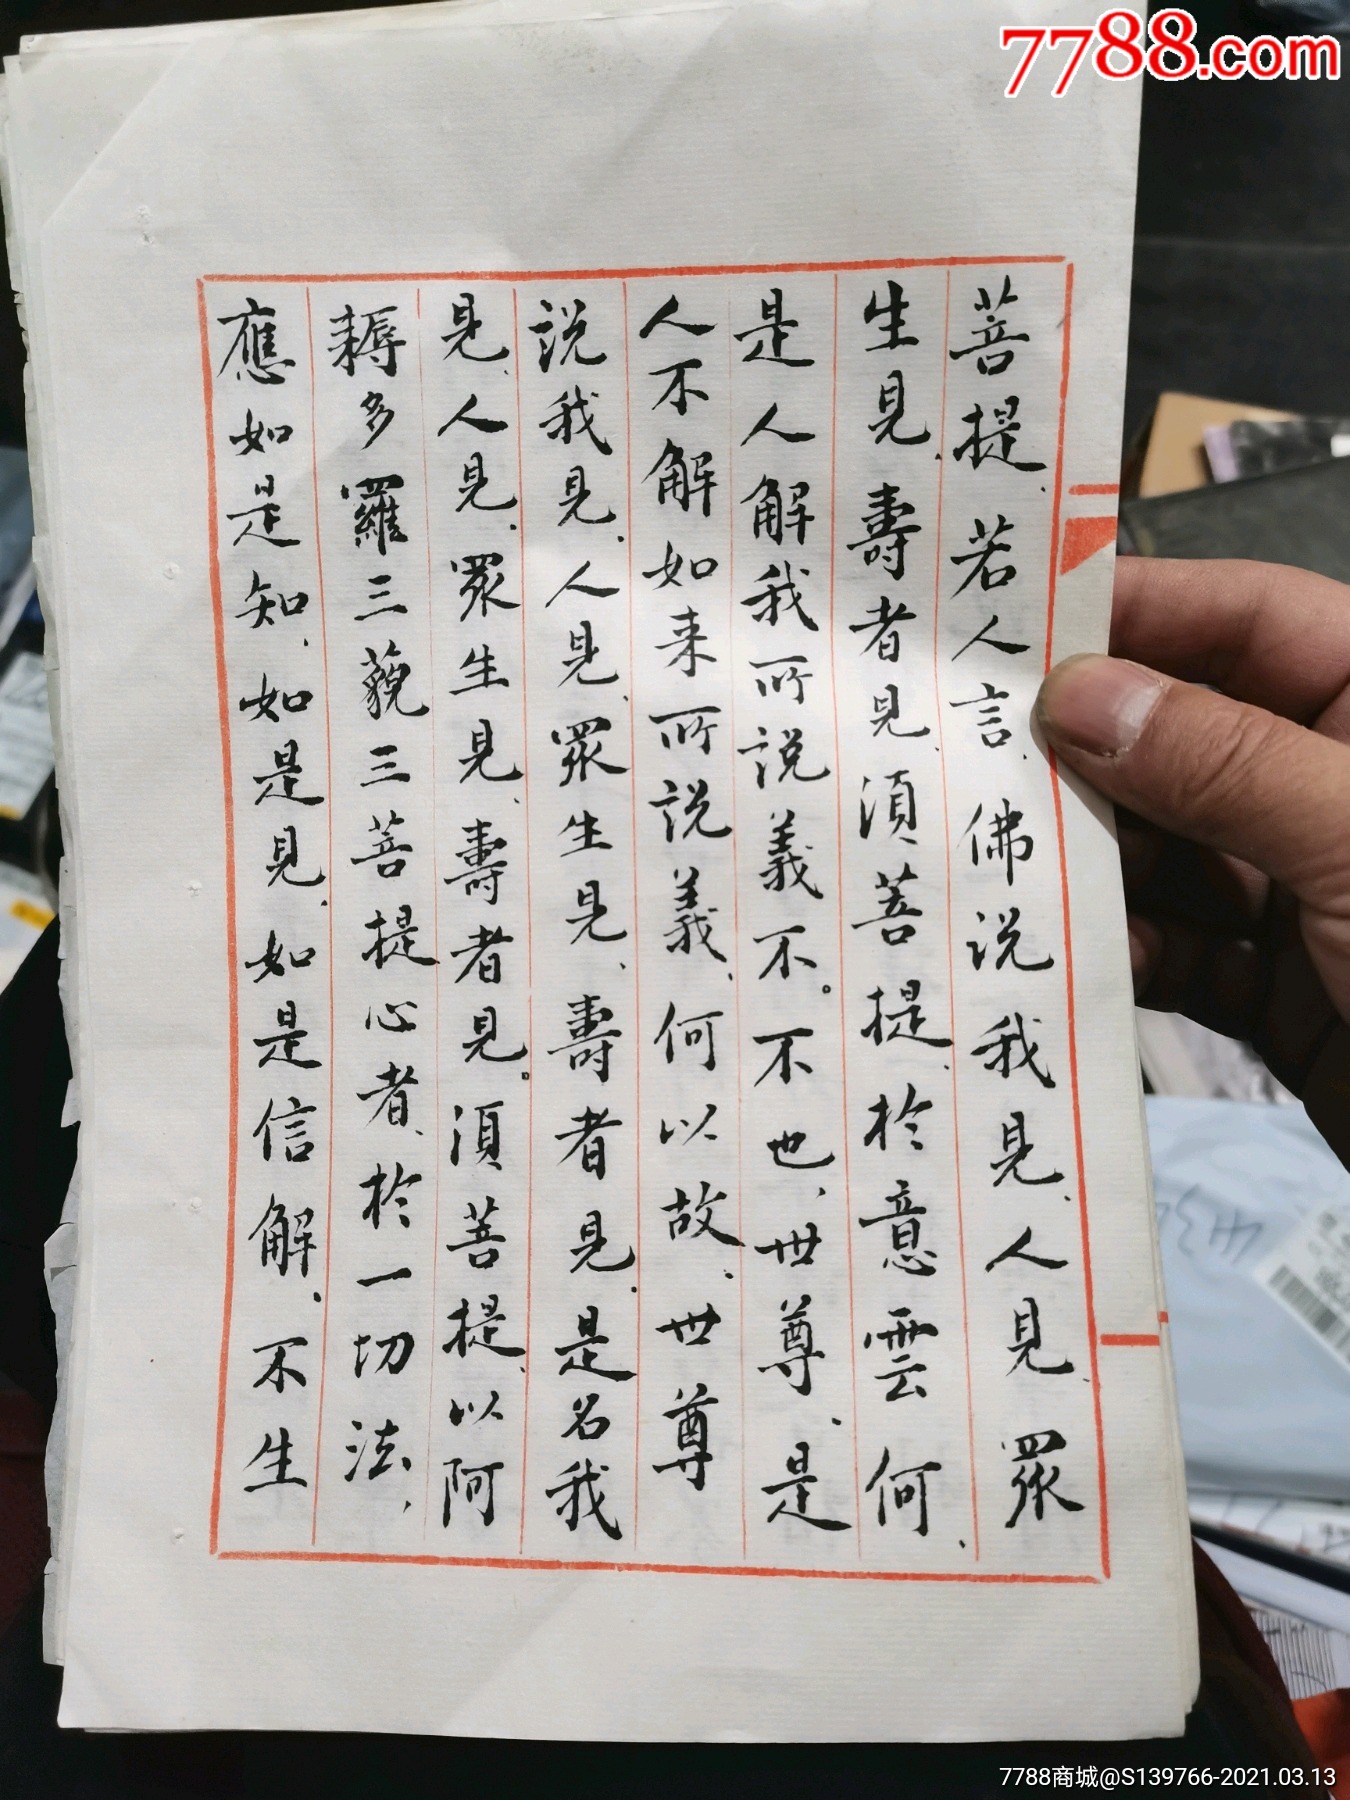 7788.com
菩提、若人言、佛说我見、人見、眾
生見、壽者見、湏菩提、於意雲何、
是人解我所说義不。不也、世尊、是
人不解如来所说義、何以故、世尊
说我見、人見、眾生見、壽者見、是名我
見、人見、眾生見、壽者見。湏菩提、以阿
耨多羅三藐三菩提心者、於一切法、
應如是知、如是見、如是信解、不生
7788商城@S139766-2021.03.13